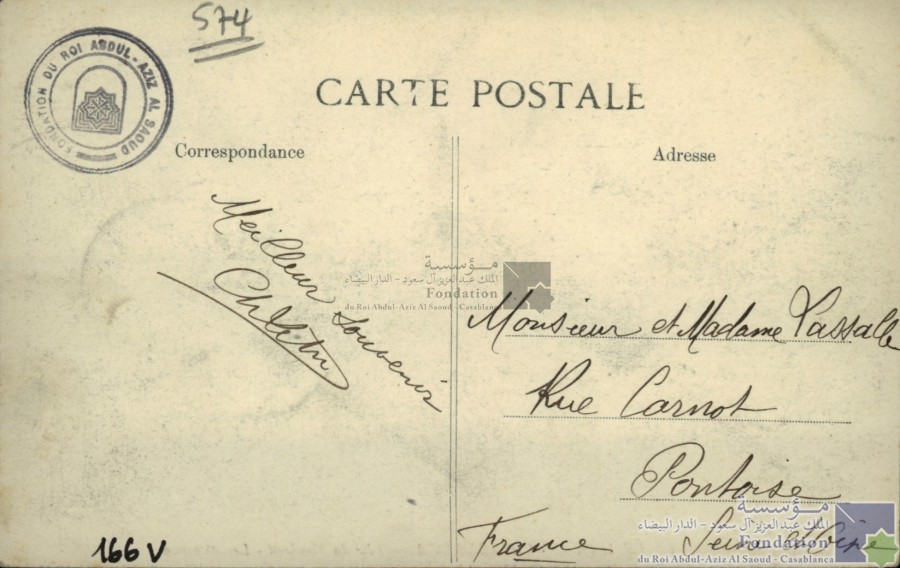 574
FONDATION DU ROI ABDUL-AZIZ AL SAOUD
CARTE POSTALE
Correspondance
Adresse
Meilleur Souvenir
مؤسسة
الملك عبد العزيز آل سعود - الدار البيضاء
Fondation
du Roi Abdul-Aziz Al Saoud - Casablanca
Monsieur et Madame Lassalle
Rue Carnot
Pontoise
Seine et Oise
France
مؤسسة
الملك عبد العزيز آل سعود - الدار البيضاء
Fondation
du Roi Abdul-Aziz Al Saoud - Casablanca
166 V